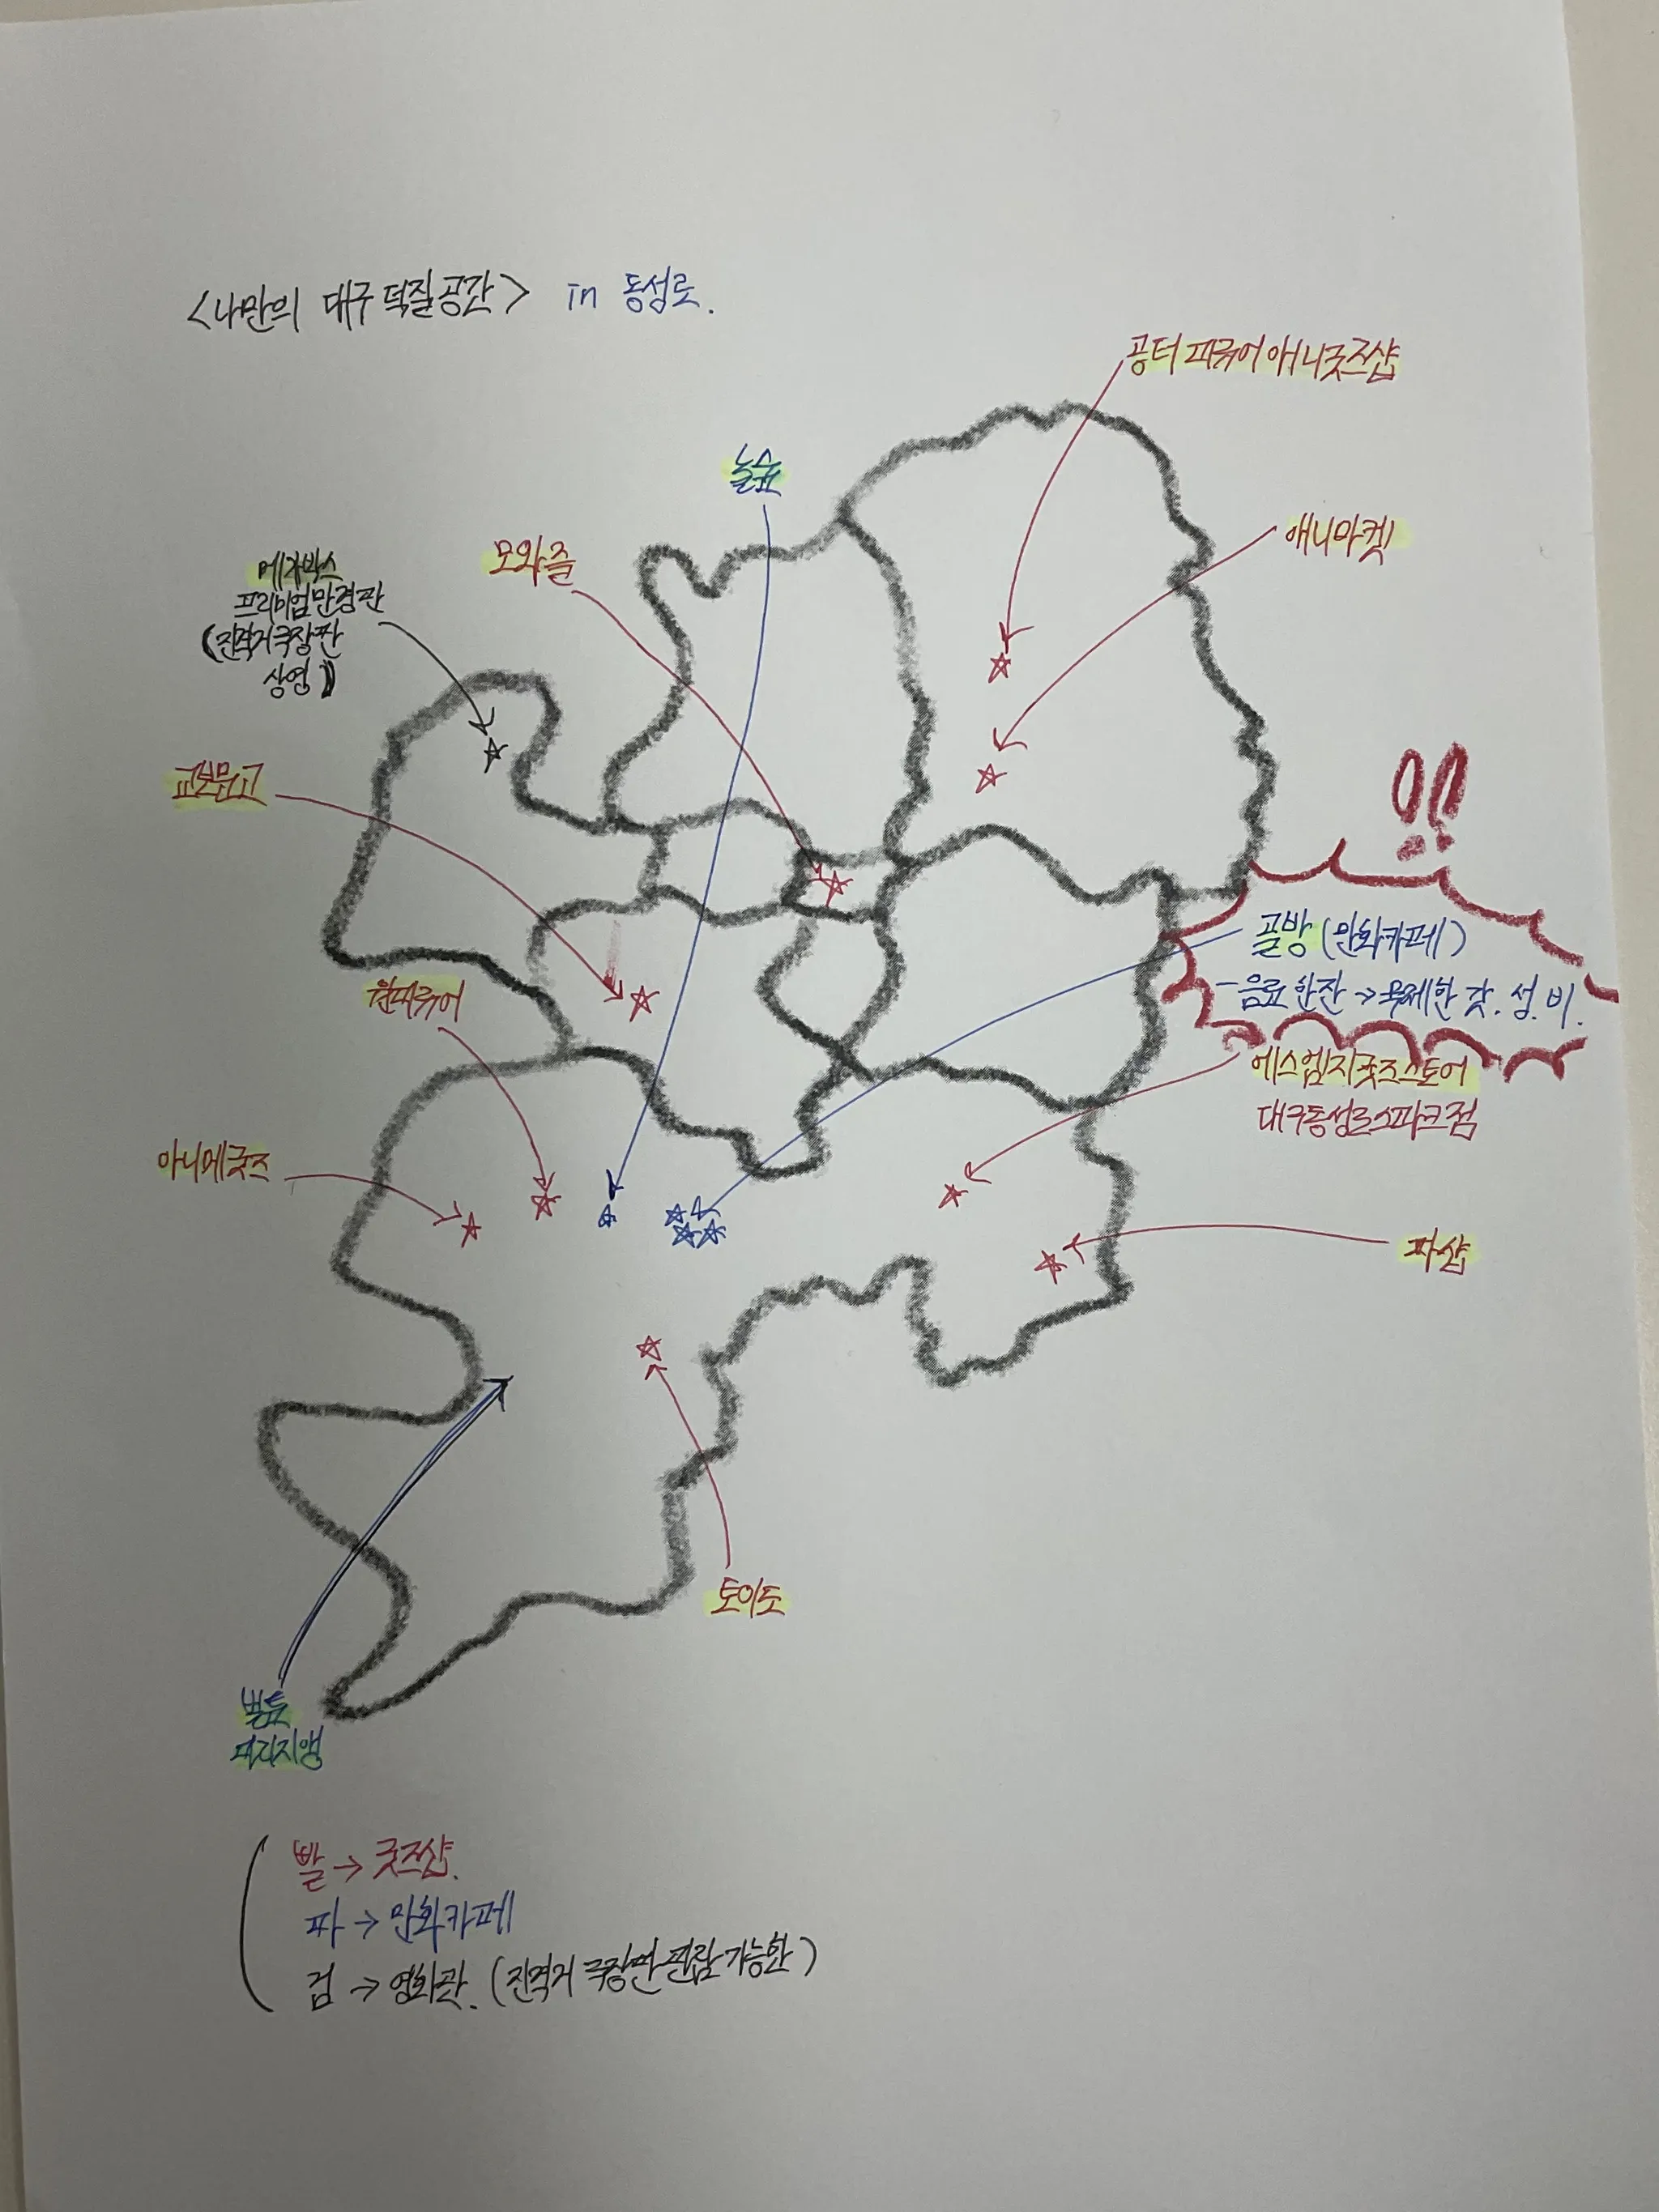 <나만의 대구 덕질공간> in 동성로.
공터 피규어 애니굿즈샵
놀숲
애니마켓
모와쥴
메가박스
프리미엄만경관
(진격거극장판
상영)
교보문고
골방 (만화카페)
-음료 한잔 → 무제한 갓.성.비.
원피규어
에스엠지굿즈스토어
대구동성로스파크점
아니메굿즈
파샵
토이도
벌툰
빨 → 굿즈샵.
파 → 만화카페
검 → 영화관. (진격거 극장판 관람 가능한)